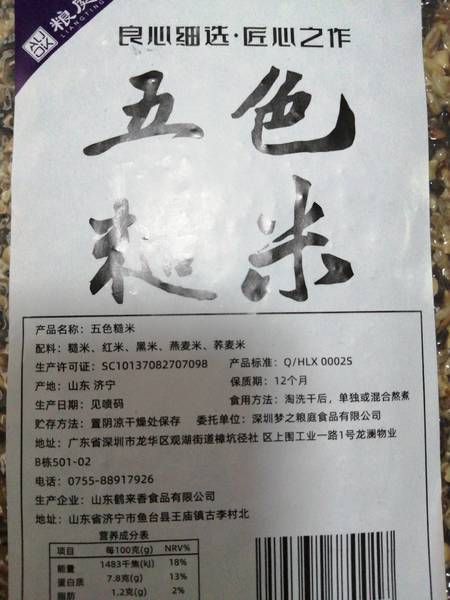 粮庭
LIANGTING
良心细选·匠心之作
五色
糙米
产品名称：五色糙米
配料：糙米、红米、黑米、燕麦米、荞麦米
生产许可证：SC10137082707098 产品标准：Q/HLX 0002S
产地：山东 济宁 保质期：12个月
生产日期：见喷码 食用方法：淘洗干后，单独或混合熬煮
贮存方法：置阴凉干燥处保存 委托单位：深圳梦之粮庭食品有限公司
地址：广东省深圳市龙华区观湖街道樟坑径社 区上围工业一路1号龙澜物业
B栋501-02
电话：0755-88917926
生产企业：山东鹤来香食品有限公司
地址：山东省济宁市鱼台县王庙镇古李村北
营养成分表
项目 每100克(g) NRV%
能量 1483千焦(kj) 18%
蛋白质 7.8克(g) 13%
脂肪 1.2克(g) 2%